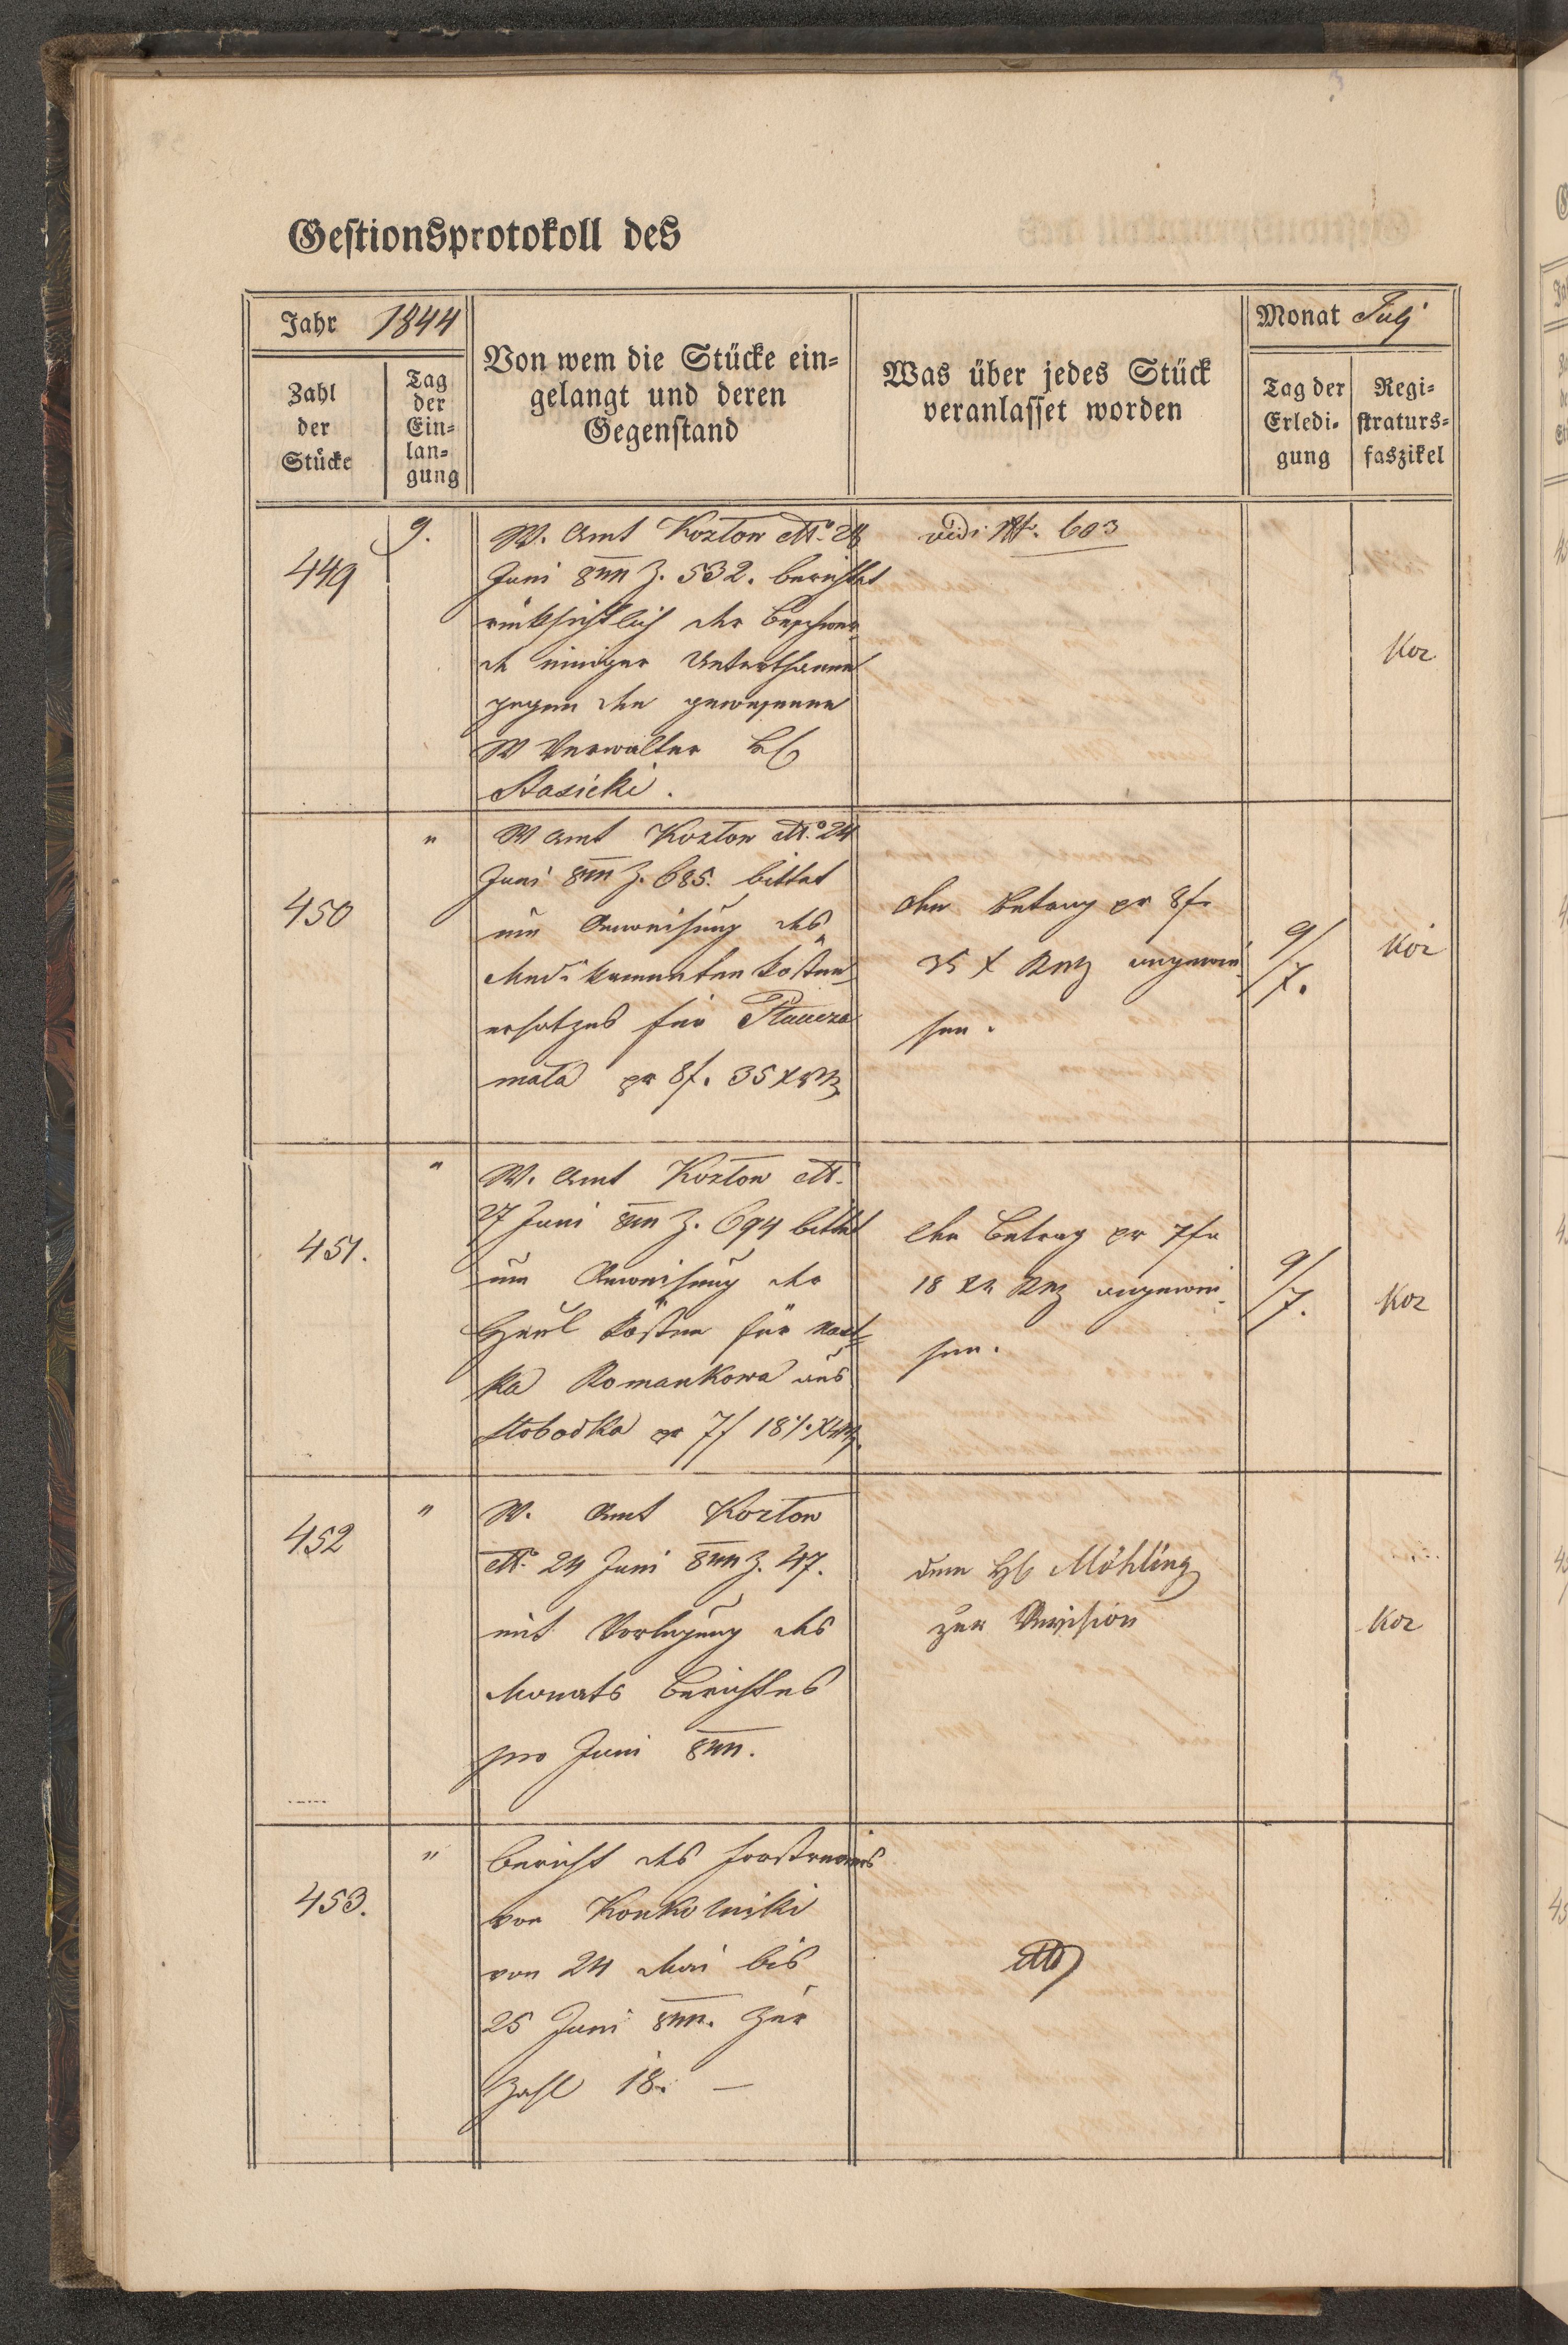 Gestionsprotokoll des
Jahr 1844
Von wem die Stücke ein-
gelangt und deren
Gegenstand
Was über jedes Stück
veranlasset worden
Monat July
Zahl
der
Stücke
Tag
der
Ein-
lan-
gung
Tag der
Erledi-
gung
Regi-
straturs-
faszikel
449
9.
W. Amt Kozłow
Juni 844 Z. 532. berichtet
rücksichtlich der Beschwer
de einiger Unterthanen
gegen den gewesenen
W Verwalter H
Stasicki.
vidi Nr. 603
Koz
450
"
W Amt Kozłow dto 24
Juni 844 Z. 685. bittet
um Anweisung des
Medikamenten Kosten
ersatzes für
pr 8f. 35 x WW
den Betrag pr 8f.
35 x WW angewie
sen.
9/7.
Koz
451.
"
W. Amt Kozłow dto
27 Juni 844 Z. 694 bittet
um Anweisung der
Heil Kosten für Nast-
ka Romankowa aus
Slobodka pr 7f 18
den Betrag pr 7f
18 xr WW angewie-
sen.
9/7.
Koz
452
"
W. Amt Kozłow
dto 24 Juni 844 Z. 47.
mit Vorlegung des
Monats Berichtes
pro Juni 844.
dem H Möhling
zur Revision
Koz
453.
"
Bericht des Forstreviers
von Konkolniki
von 24 Mai bis
25 Juni 844. Zur
Zahl 18. —